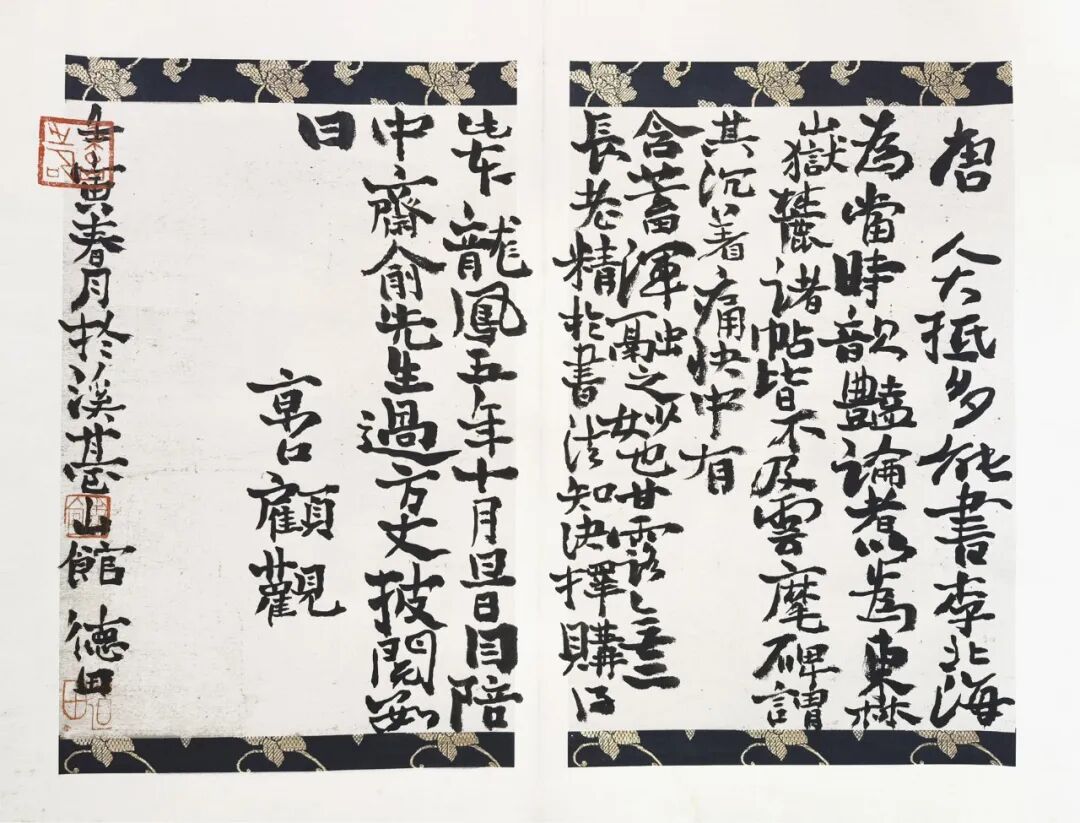 唐人大抵多能書李北海
為當時歆豔論者以為東林
嶽麓諸帖皆不及雲麾碑謂
其沉着痛快中有
含蓄渾融之妙也甘露無二
長老精於書法知決擇購得
此本龍鳳五年十月旦日因陪
中齋俞先生過方丈披閱累
日
京口顧觀
寅春月於溪山館 德田